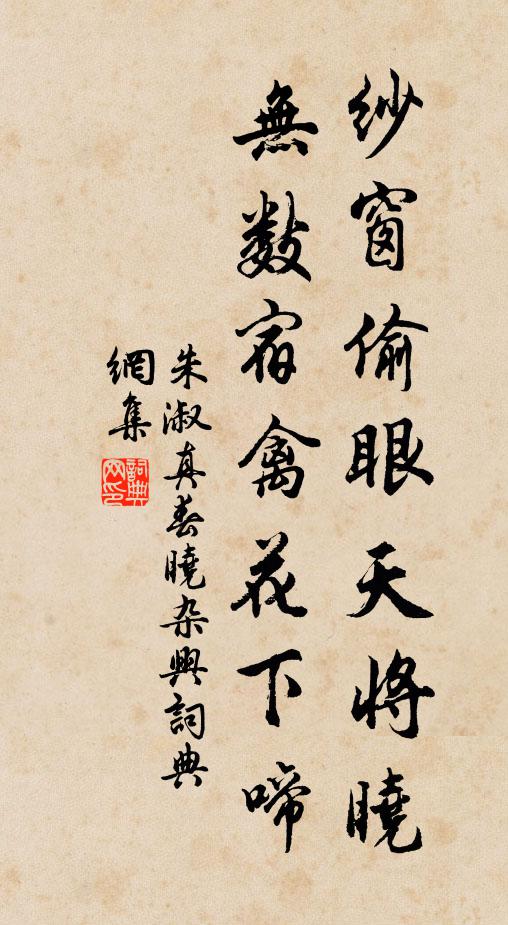 紗窗偷眼天將曉
無數宿禽花下啼
朱淑真春曉杂興詞典
網集
詞典網印